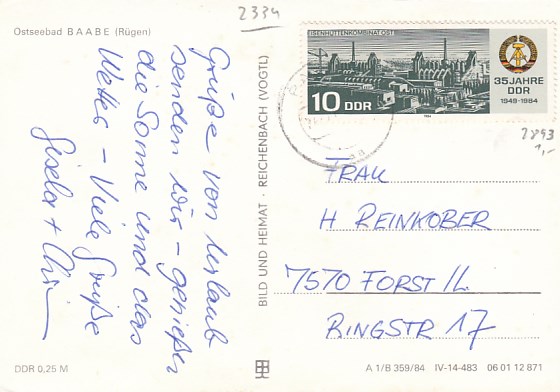 2334
Ostseebad BAABE (Rügen)
Grüße von Urlaub
senden wir – genießen
die Sonne und das
Wetter – Viele Grüße
Gisela +
BILD UND HEIMAT · REICHENBACH (VOGTL)
EISENHÜTTENKOMBINAT OST
10 DDR
35 JAHRE
DDR
1949-1984
1984
2893
1,-
FRAU
H REINKOBER
7570 FORST/L.
RINGSTR 17
DDR 0,25 M
A 1/B 359/84 IV-14-483 06 01 12 871